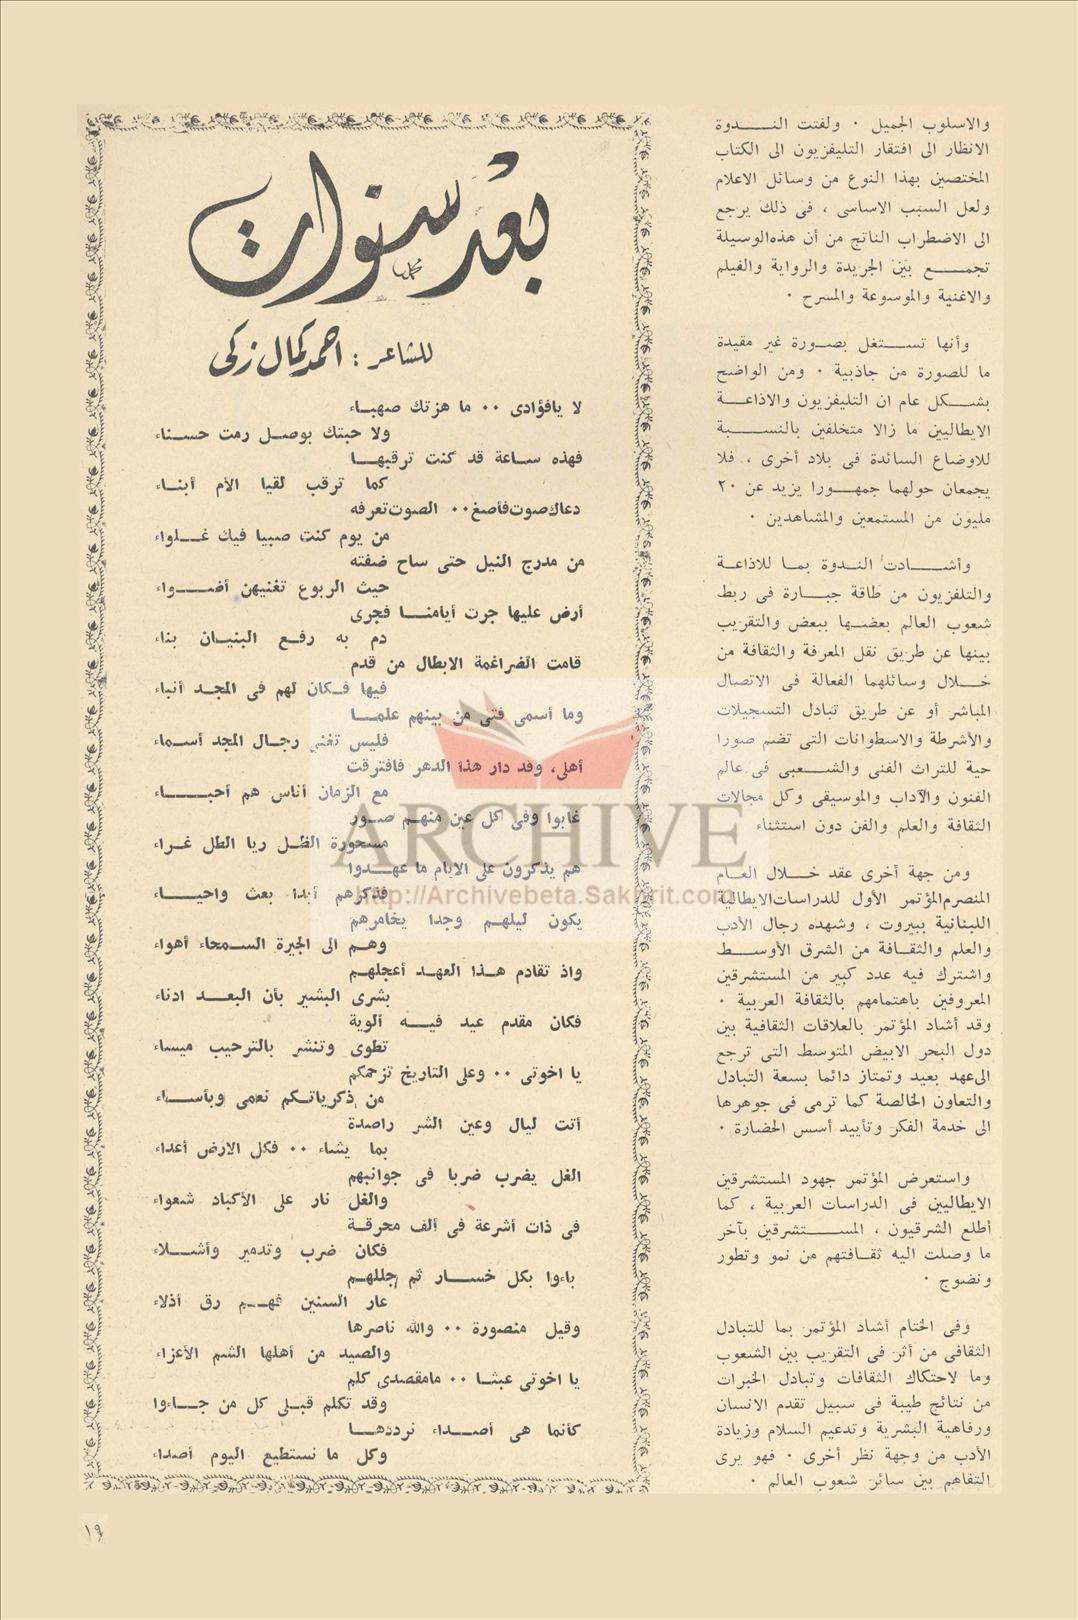 والاسلوب الجميل . ولفتت النـــدوة
الانظار الى افتقار التليفزيون الى الكتاب
المختصين بهذا النوع من وسائل الاعلام
ولعل السبب الاساسى ، فى ذلك يرجع
الى الاضطراب الناتج من أن هذه الوسيلة
تجمـــع بين الجريدة والرواية والفيلم
والاغنية والموسوعة والمسرح .
وأنها تســتغل بصــورة غير مقيدة
ما للصورة من جاذبية . ومن الواضح
بشــكل عام ان التليفزيون والاذاعــة
الايطاليين ما زالا متخلفين بالنســبة
للاوضاع السائدة فى بلاد أخرى ، فلا
يجمعان حولهما جمهــورا يزيد عن ٢٠
مليون من المستمعين والمشاهدين .
وأشــادت الندوة بما للاذاعــة
والتلفزيون من طاقة جبــارة فى ربط
شعوب العالم بعضــها ببعض والتقريب
بينها عن طريق نقل المعرفة والثقافة من
خــلال وسائلهما الفعالة فى الاتصال
المباشر أو عن طريق تبادل التسجيلات
والأشرطة والاسطوانات التى تضم صورا
حية للتراث الفنى والشــعبى فى عالم
الفنون والآداب والموسيقى وكل مجالات
الثقافة والعلم والفن دون استثناء
ومن جهة أخرى عقد خــلال العــام
المنصرم المؤتمر الأول للدراسات الايطالية
اللبنانية ببيروت ، وشهده رجال الأدب
والعلم والثقــافة من الشرق الأوســط
واشترك فيه عدد كبير من المستشرقين
المعروفين باهتمامهم بالثقافة العربية .
وقد أشاد المؤتمر بالعلاقات الثقافية بين
دول البحر الابيض المتوسط التى ترجع
الى عهد بعيد وتمتاز دائما بسعة التبادل
والتعاون الخالصة كما ترمى فى جوهرها
الى خدمة الفكر وتأييد أسس الحضارة .
واستعرض المؤتمر جهود المستشرقين
الايطاليين فى الدراسات العربية ، كما
أطلع الشرقيون ، المســتشرقين بآخر
ما وصلت اليه ثقــافتهم من نمو وتطور
ونضوج .
وفى الختام أشاد المؤتمر بما للتبادل
الثقافى من أثر فى التقريب بين الشعوب
وما لاحتكاك الثقافات وتبادل الخبرات
من نتائج طيبة فى سبيل تقدم الانسان
ورفاهية البشرية وتدعيم السلام وزيادة
الأدب من وجهة نظر أخرى . فهو يرى
التفاهم بين سائر شعوب العالم .
بعد سنوات
للشاعر : احمد كمال زكى
لا يافؤادى .. ما هزتك صهبــاء
ولا حبتك بوصــل رمت حســناء
فهذه ســاعة قد كنت ترقبهــا
كما ترقب لقيا الأم أبنــاء
دعاك صوت فأصغ .. الصوت تعرفه
من يوم كنت صبيا فيك غــلواء
من مدرج النيل حتى ساح ضفته
حيث الربوع تغنيهن أضــواء
أرض عليها جرت أيامنــا فجرى
دم به رفــع البنيــان بناء
قامت الضراغمة الابطال من قدم
فيها فــكان لهم فى المجــد أنباء
وما أسمى فتى من بينهم علمــا
فليس تغنى رجــال المجد أسمــاء
أهلى، وقد دار هذا الدهر فافترقت
مع الزمان أناس هم أحبــاء
غابوا وفى كل عين منهــم صــور
مسحورة الظــل ريا الطل غــراء
هم يذكرون على الايام ما عهــدوا
فذكرهم أبدا بعث واحيــاء
يكون ليلهــم وجدا يخامرهم
وهــم الى الجيرة الســمحاء أهواء
واذ تقادم هــذا العهــد أعجلهــم
بشرى البشير بأن البعــد ادناء
فكان مقدم عيد فيــه ألوية
تطوى وتنشر بالترحيب ميساء
يا اخوتى .. وعلى التاريخ تزحمكم
من ذكرياتــكم نعمى وبأســاء
أتت ليال وعين الشر راصدة
بما يشاء .. فكل الارض أعداء
الغل يضرب ضربا فى جوانبهم
والغل نار على الأكباد شعواء
فى ذات أشرعة فى ألف محرقــة
فكان ضرب وتدمير وأشــلاء
باءوا بكل خســار ثم جللهــم
عار السنين فهــم رق أذلاء
وقيل منصورة .. والله ناصرها
والصيد من أهلها الشم الأعزاء
يا اخوتى عبثــا .. مامقصدى كلم
وقد تكلم قبــلى كل من جــاءوا
كأنما هى أصــداء نرددهــا
وكل ما نستطيع اليوم أصداء
ARCHIVE
http://Archivebeta.Sakhrit.com
١٩